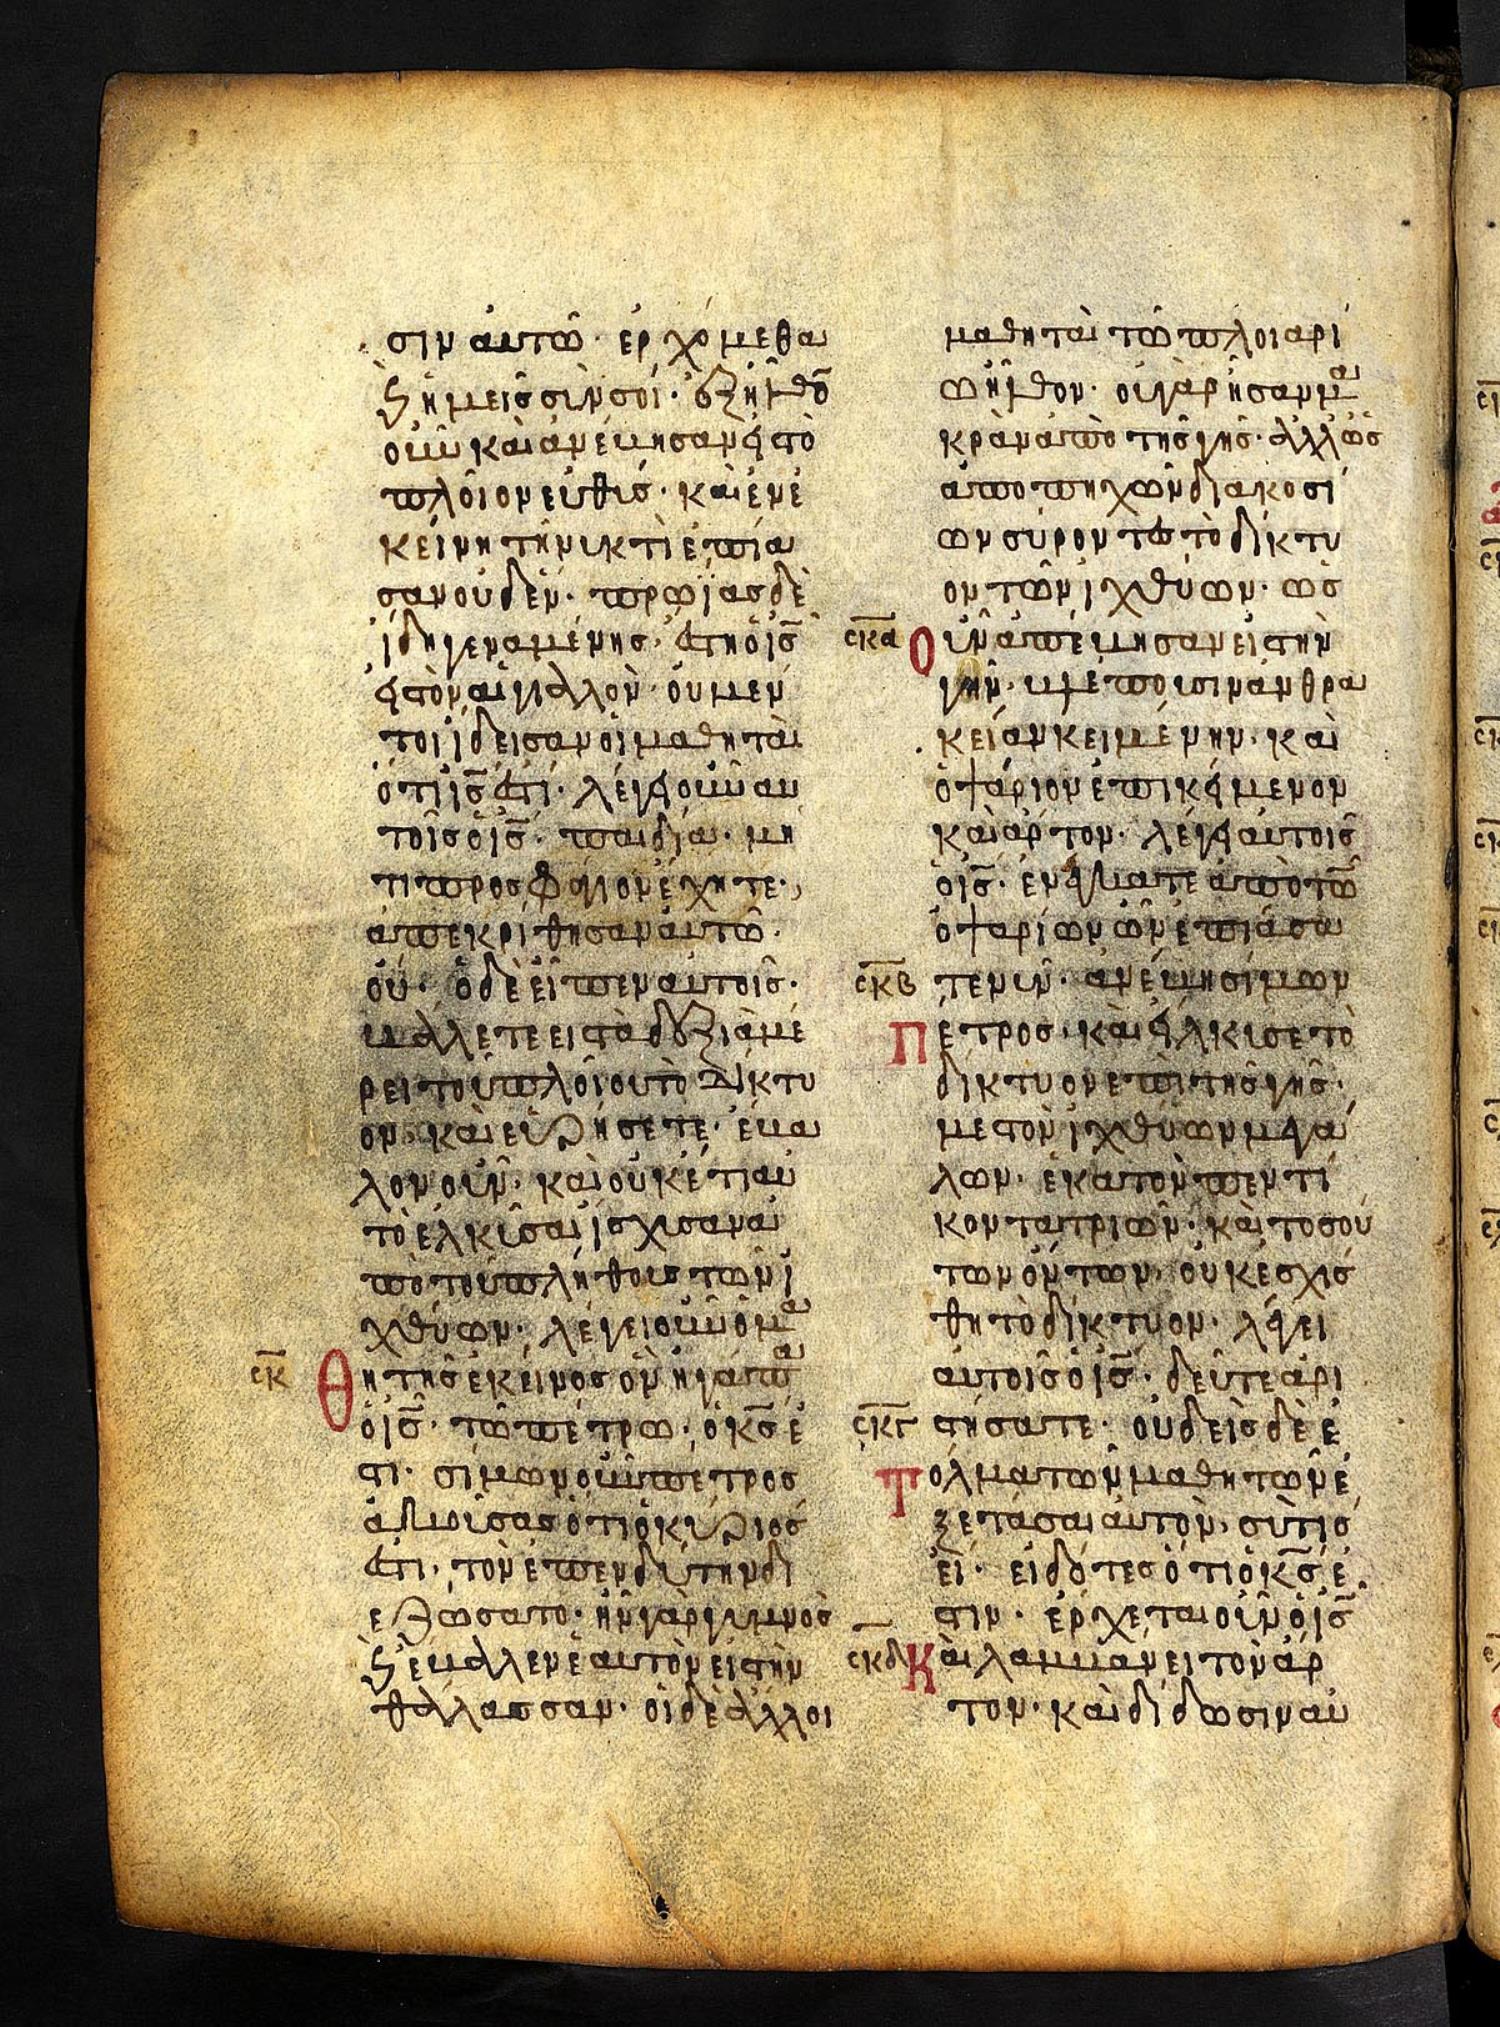 σιν αυτῶ· ἐρχόμεθα
ϗ ἡμεῖς σὺν σοί· ἐξῆλθο̅
οὖν καὶ ἀνέβησαν εἰς τὸ
πλοῖον εὐθύς· καὶ ἐν ἐ
κείνη τῆ νυκτὶ ἐπία
σαν οὐδέν· πρωΐας δὲ
ἤδη γεναμένης· ἔστη ὁ ἰ̅ς̅
εἰς τὸν αἰγιαλὸν· οὐ μέν
τοι ἤδεισαν οἱ μαθηταὶ
ὅτι ἰ̅ς̅ ἐστί· λέγει οὖν αυ
τοῖς ὁ ἰ̅ς̅· παιδία· μή
τι προσφάγιον ἔχητε·
ἀπεκρίθησαν αὐτῶ·
οὔ· ὁ δὲ εἶπεν αὐτοῖς·
βάλετε εἰς τὰ δεξιὰ μέ
ρει τοῦ πλοίου τὸ δίκτυ
ον καὶ εὑρήσετε· ἔβα
λον οὖν· καὶ οὐκέτι αὐ
τὸ ἑλκῦσαι ἴσχυσαν ἀ
πὸ τοῦ πλήθους τῶν ἰ
χθύων· λέγει οὖν ὁ μα
ϲ̅κ̅ θητὴς ἐκεῖνος ὃν ἠγάπα
ὁ ἰ̅ς̅· τῶ πέτρω· ὁ κ̅ς̅ ἐ
στι· σίμων οὖν πέτρος
ἀκούσας ὅτι ὁ κύριος
ἐστι· τὸν ἐπενδύτην δι
εζώσατο· ἦν γὰρ γυμνὸς
ϗ ἔβαλεν ἑαυτὸν εἰς τὴν
θάλασσαν· οἱ δὲ ἄλλοι
μαθηταὶ τῶ πλοιαρί
ω ἦλθον· οὐ γὰρ ἦσαν μα
κρὰν ἀπὸ τῆς γῆς· ἀλλ' ὡς
ἀπὸ πηχῶν διακοσί
ων σύροντες τὸ δίκτυ
ον τῶν ἰχθύων· ὡς
ϲ̅κ̅α̅ οὖν ἀπέβησαν εἰς τὴν
γῆν· βλέπουσιν ἀνθρα
κείαν κειμένην· καὶ
ὀψάριον ἐπικείμενον
καὶ ἄρτον· λέγει αὐτοῖς
ὁ ἰ̅ς̅· ἐνέγκατε ἀπὸ τῶν
ὀψαρίων ὧν ἐπιάσα
ϲ̅κ̅β̅ τε νῦν· ἀνέβη σίμων
πέτρος· καὶ εἵλκυσε τὸ
δίκτυον ἐπὶ τῆς γῆς·
μεστὸν ἰχθύων μεγά
λων· ἑκατὸν πεντί
κοντα τριῶν· καὶ τοσού
των ὄντων· οὐκ ἐσχίσ
θη τὸ δίκτυον· λέγει
αὐτοῖς ὁ ἰ̅ς̅· δεῦτε ἀρι
ϲ̅κ̅γ̅ στήσατε· οὐδεὶς δὲ ἐ
τόλμα τῶν μαθητῶν ἐ
ξετάσαι αὐτὸν· σὺ τίς
εἶ· εἰδότες ὅτι ὁ κ̅ς̅ ἐ
στιν· ἔρχεται οὖν ὁ ἰ̅ς̅
ϲ̅κ̅δ̅ καὶ λαμβάνει τὸν ἄρ
τον· καὶ δίδωσιν αὐ